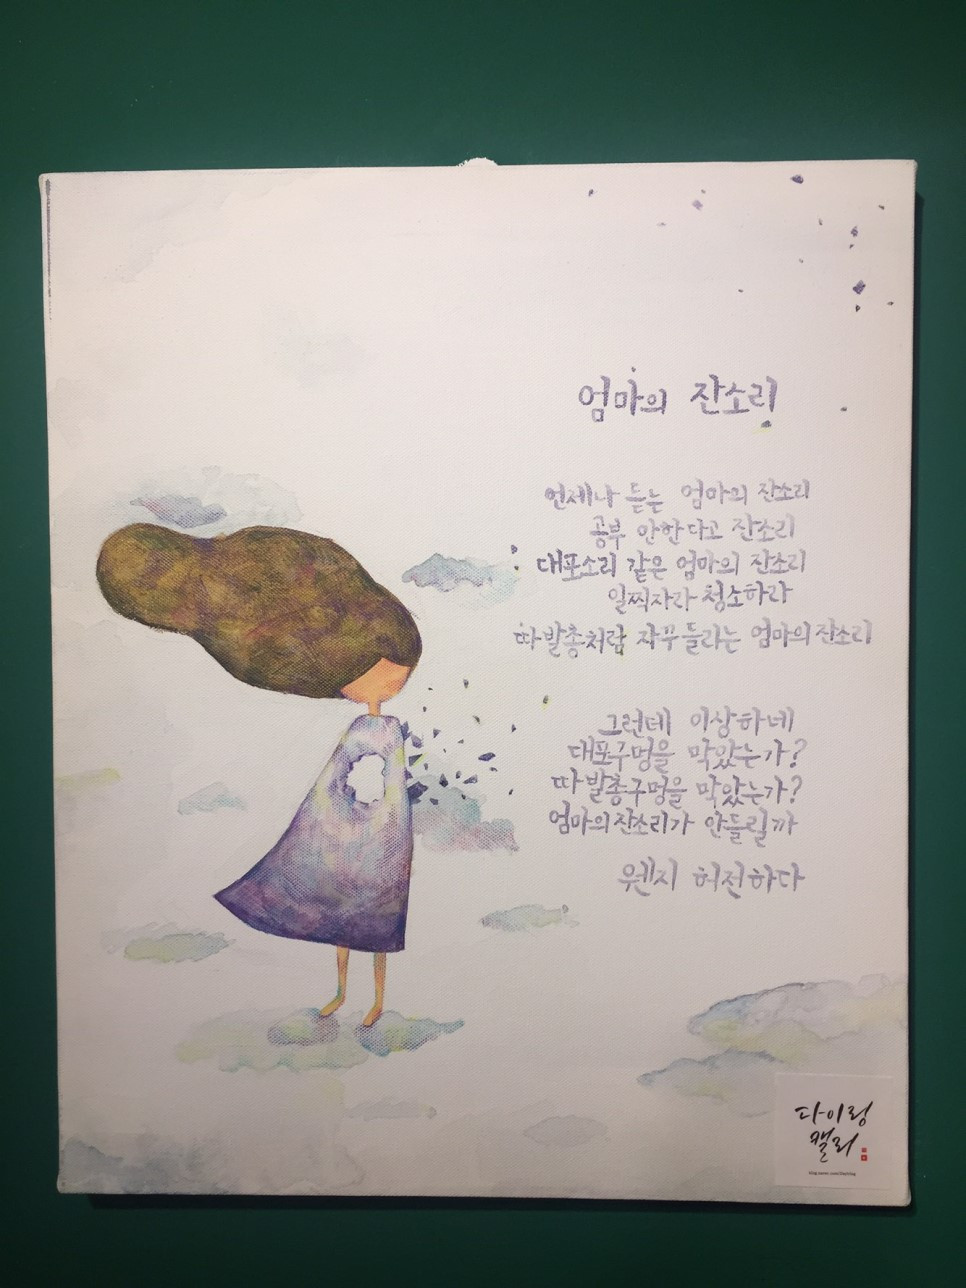 엄마의 잔소리
언제나 듣는 엄마의 잔소리
공부 안한다고 잔소리
대포소리 같은 엄마의 잔소리
일찍자라 청소하라
따발총처럼 자꾸 들라는 엄마의 잔소리
그런데 이상하네
대포구멍을 막았는가?
따발총구멍을 막았는가?
엄마의 잔소리가 안들릴까
웬지 허전하다
다이링
캘리